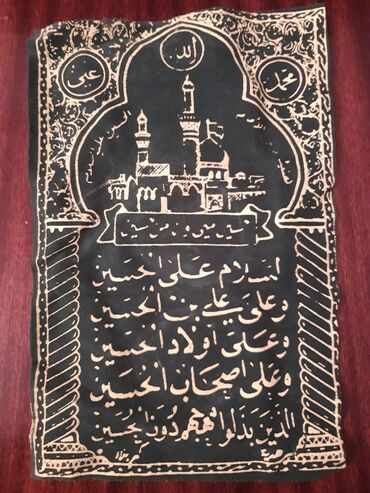 الله
محمد
علي
حسين مني وانا من حسين
السلام على الحسين
وعلى علي بن الحسين
وعلى اولاد الحسين
وعلى اصحاب الحسين
الذين بذلوا مهجهم دون الحسين